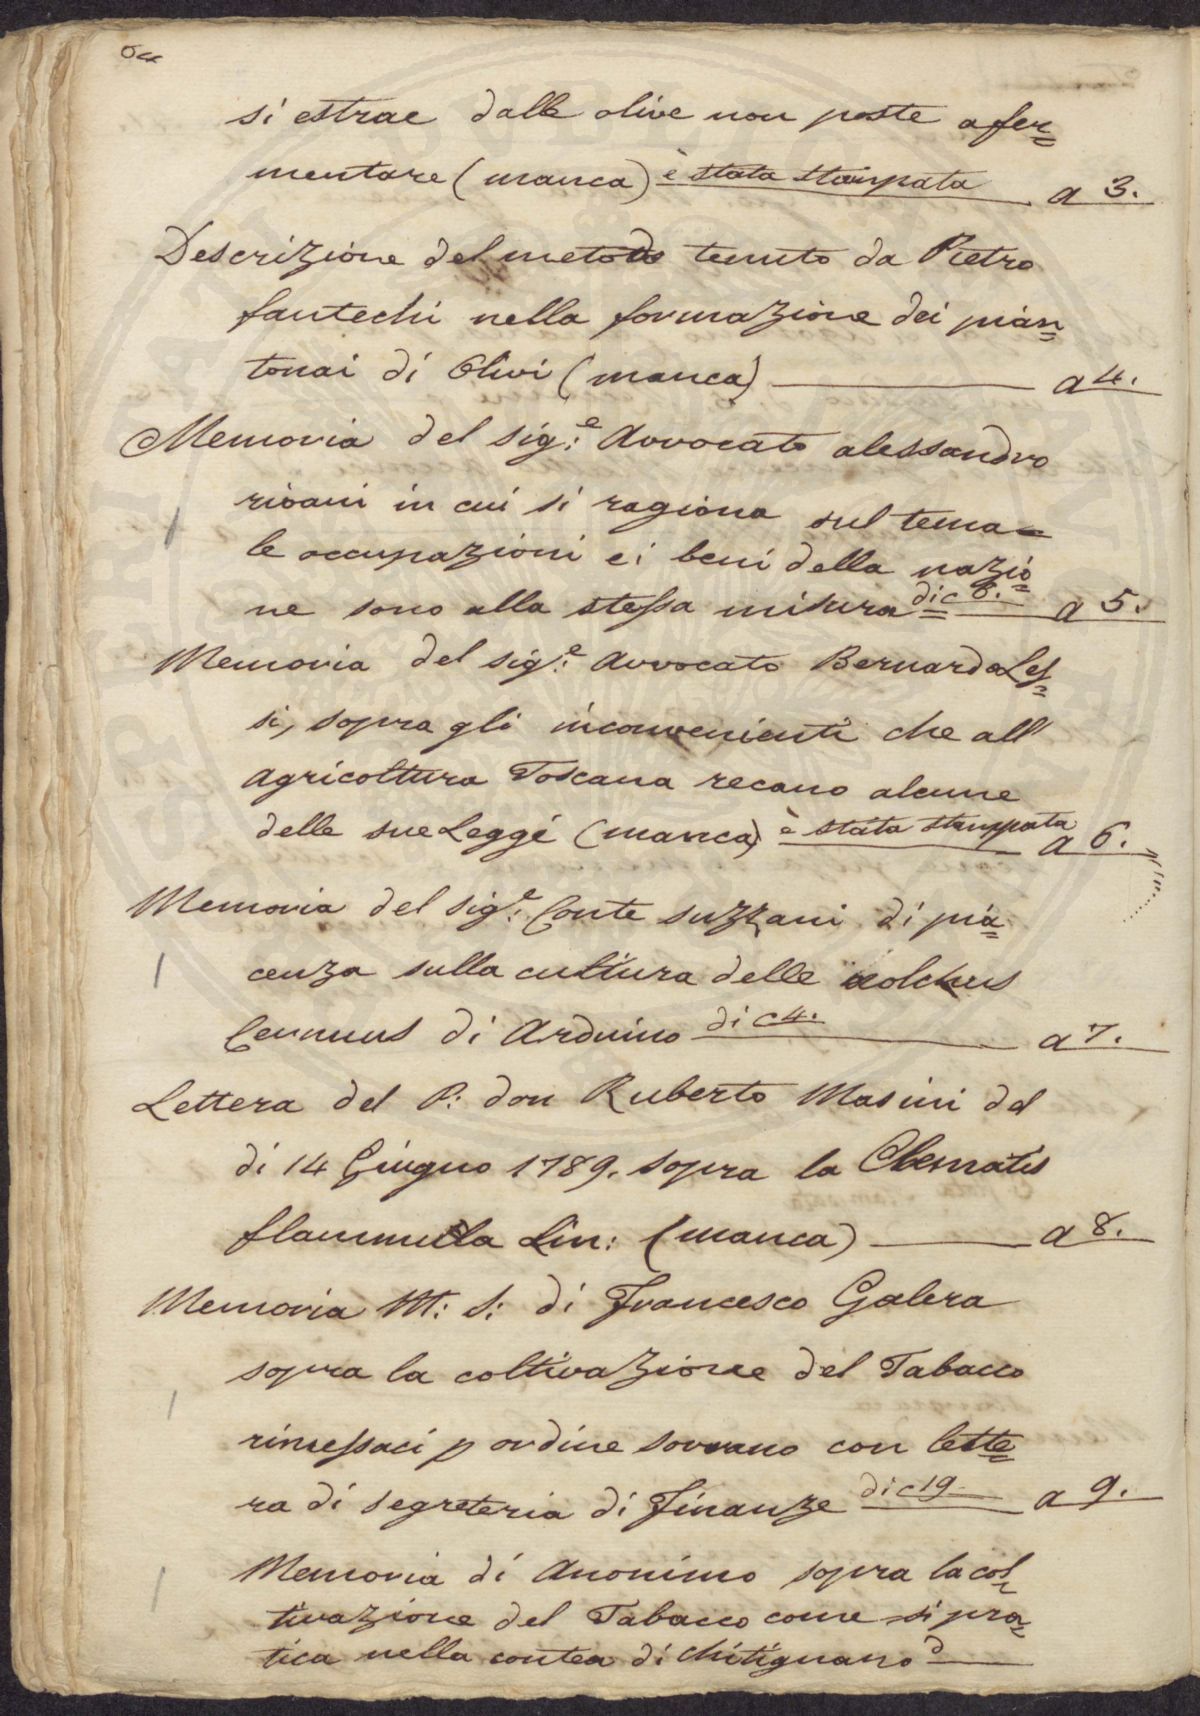 si estrae dalle olive non poste a fer=
mentare (manca) è stata stampata a 3.
Descrizione del metodo tenuto da Pietro
fantechi nella formazione dei pian=
tonai di Olivi (manca) a 4.
Memoria del sig.e Avvocato alessandro
rivani in cui si ragiona sul tema=
le occupazioni e i beni della nazio=
ne sono alla stessa misura= di c 8. a 5.
Memoria del sig.e Avvocato Bernardo Les=
si, sopra gli inconvenienti che all'
agricoltura Toscana recano alcune
delle sue Leggi (manca) è stata stampata a 6.
Memoria del sig.e Conte suzzani di pia=
cenza sulla cultura delle holchus
Cernuus di Arduino di c 4. a 7.
Lettera del P: don Ruberto Masini del
di 14 Giugno 1789. sopra la Clematis
flammula Lin: (manca) a 8.
Memoria M: S: di Francesco Galera
sopra la coltivazione del Tabacco
rimessaci p ordine sovrano con lette=
ra di segreteria di Finanze di c 19 a 9.
Memoria di Anonimo sopra la col=
tivazione del Tabacco come si pra=
tica nella contea di Chitignano